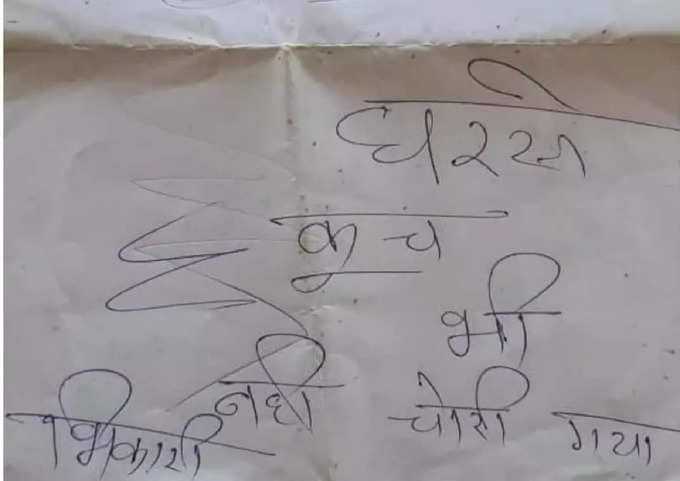 घरसे
कुच
भी
भिकारी नही चोरी गया